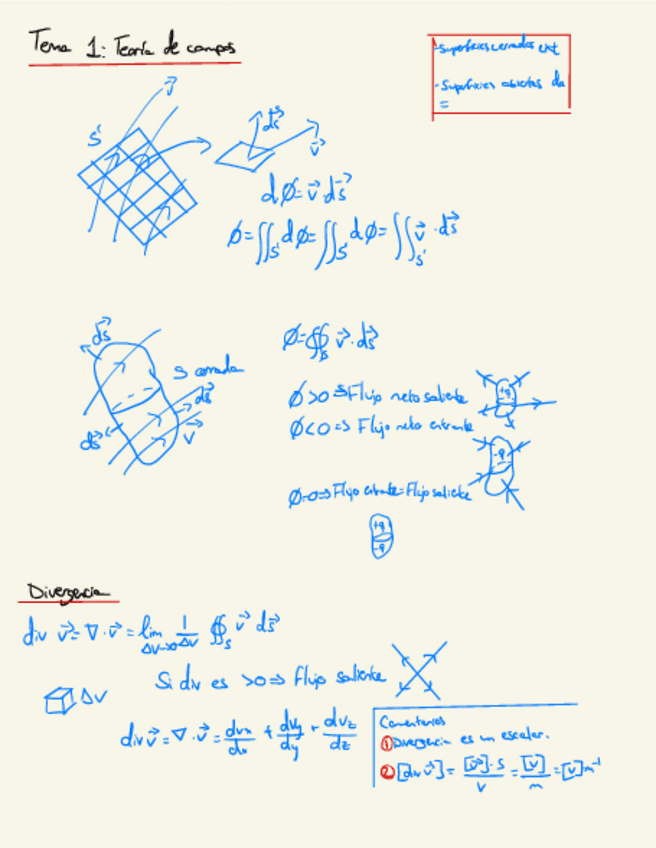 Tema 1: Teoría de campos
-Superficies cerradas ext
-Superficies abiertas da
=
S
v⃗
ds⃗
v⃗
dΦ=v⃗·ds⃗
Φ=∬_S dΦ=∬_S dΦ=∬_S v⃗·ds⃗
ds⃗
S cerrada
ds⃗
ds⃗
v⃗
Φ=∯_S v⃗·ds⃗
Φ>0⇒Flujo neto saliente
+q
Φ<0=> Flujo neto entrante
-q
Φ=0⇒Flujo entrante=Flujo saliente
+q
-q
Divergencia
div v⃗=∇·v⃗=lim_{ΔV→0} 1/ΔV ∯_S v⃗ ds⃗
Si div es >0⇒ flujo saliente
ΔV
div v⃗=∇·v⃗=dvx/dx + dvy/dy + dvz/dz
Comentarios
① Divergencia es un escalar.
② [div v⃗]= [v⃗]·S/V = [v]/m =[v]m⁻¹